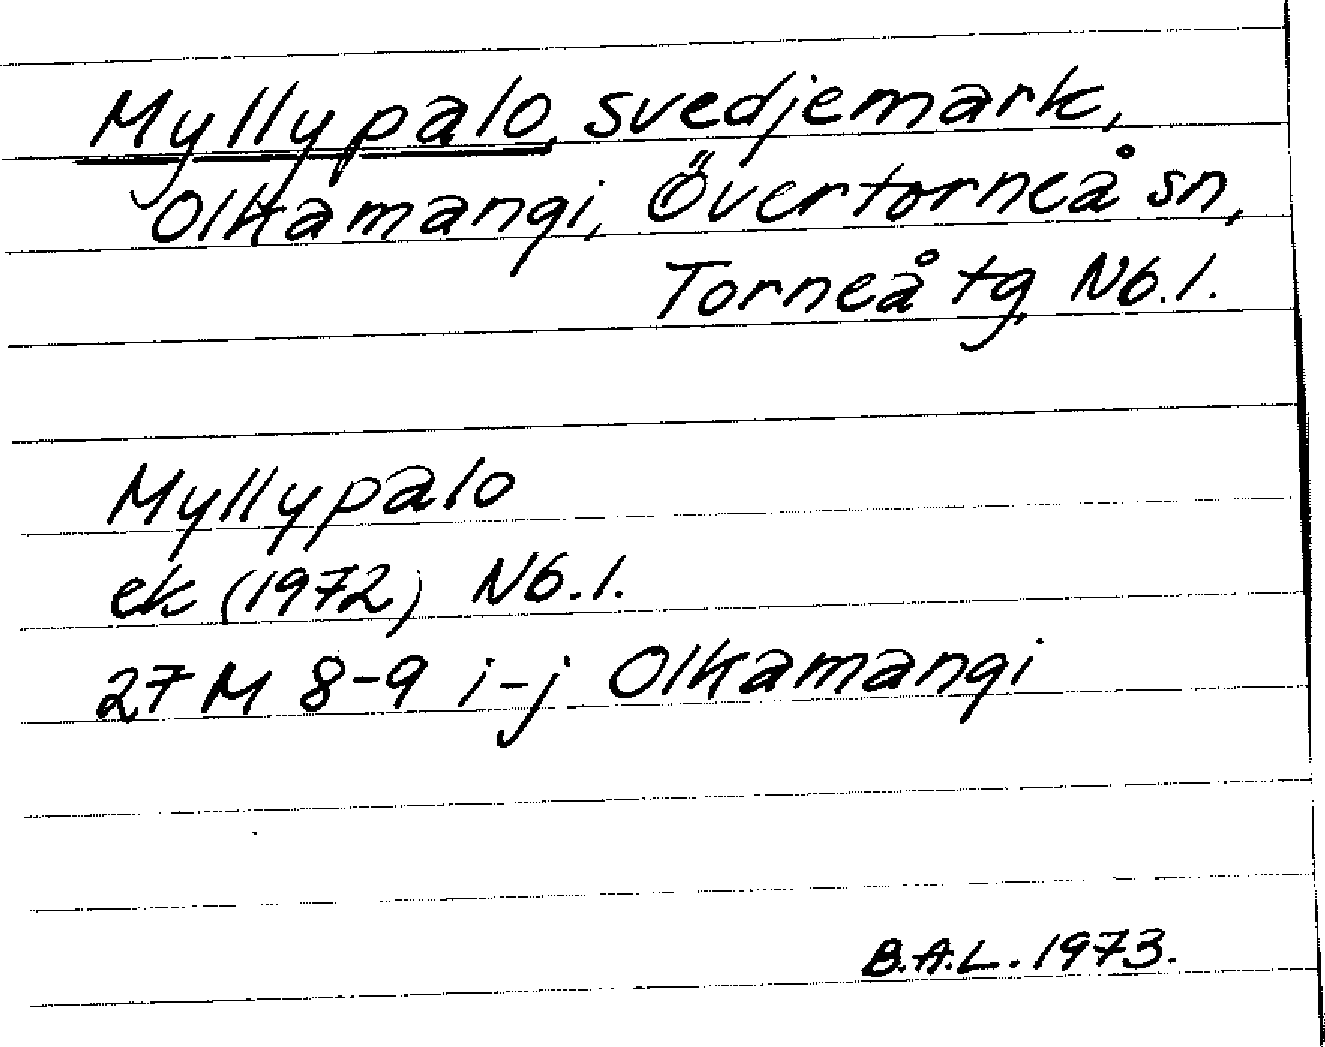 Myllypalo, svedjemark,
Olkamangi, Övertorneå sn,
Torneå tg, Nb.l.
Myllypalo
ek (1972) Nb.l.
27 M 8-9 i-j Olkamangi
B.A.L. 1973.